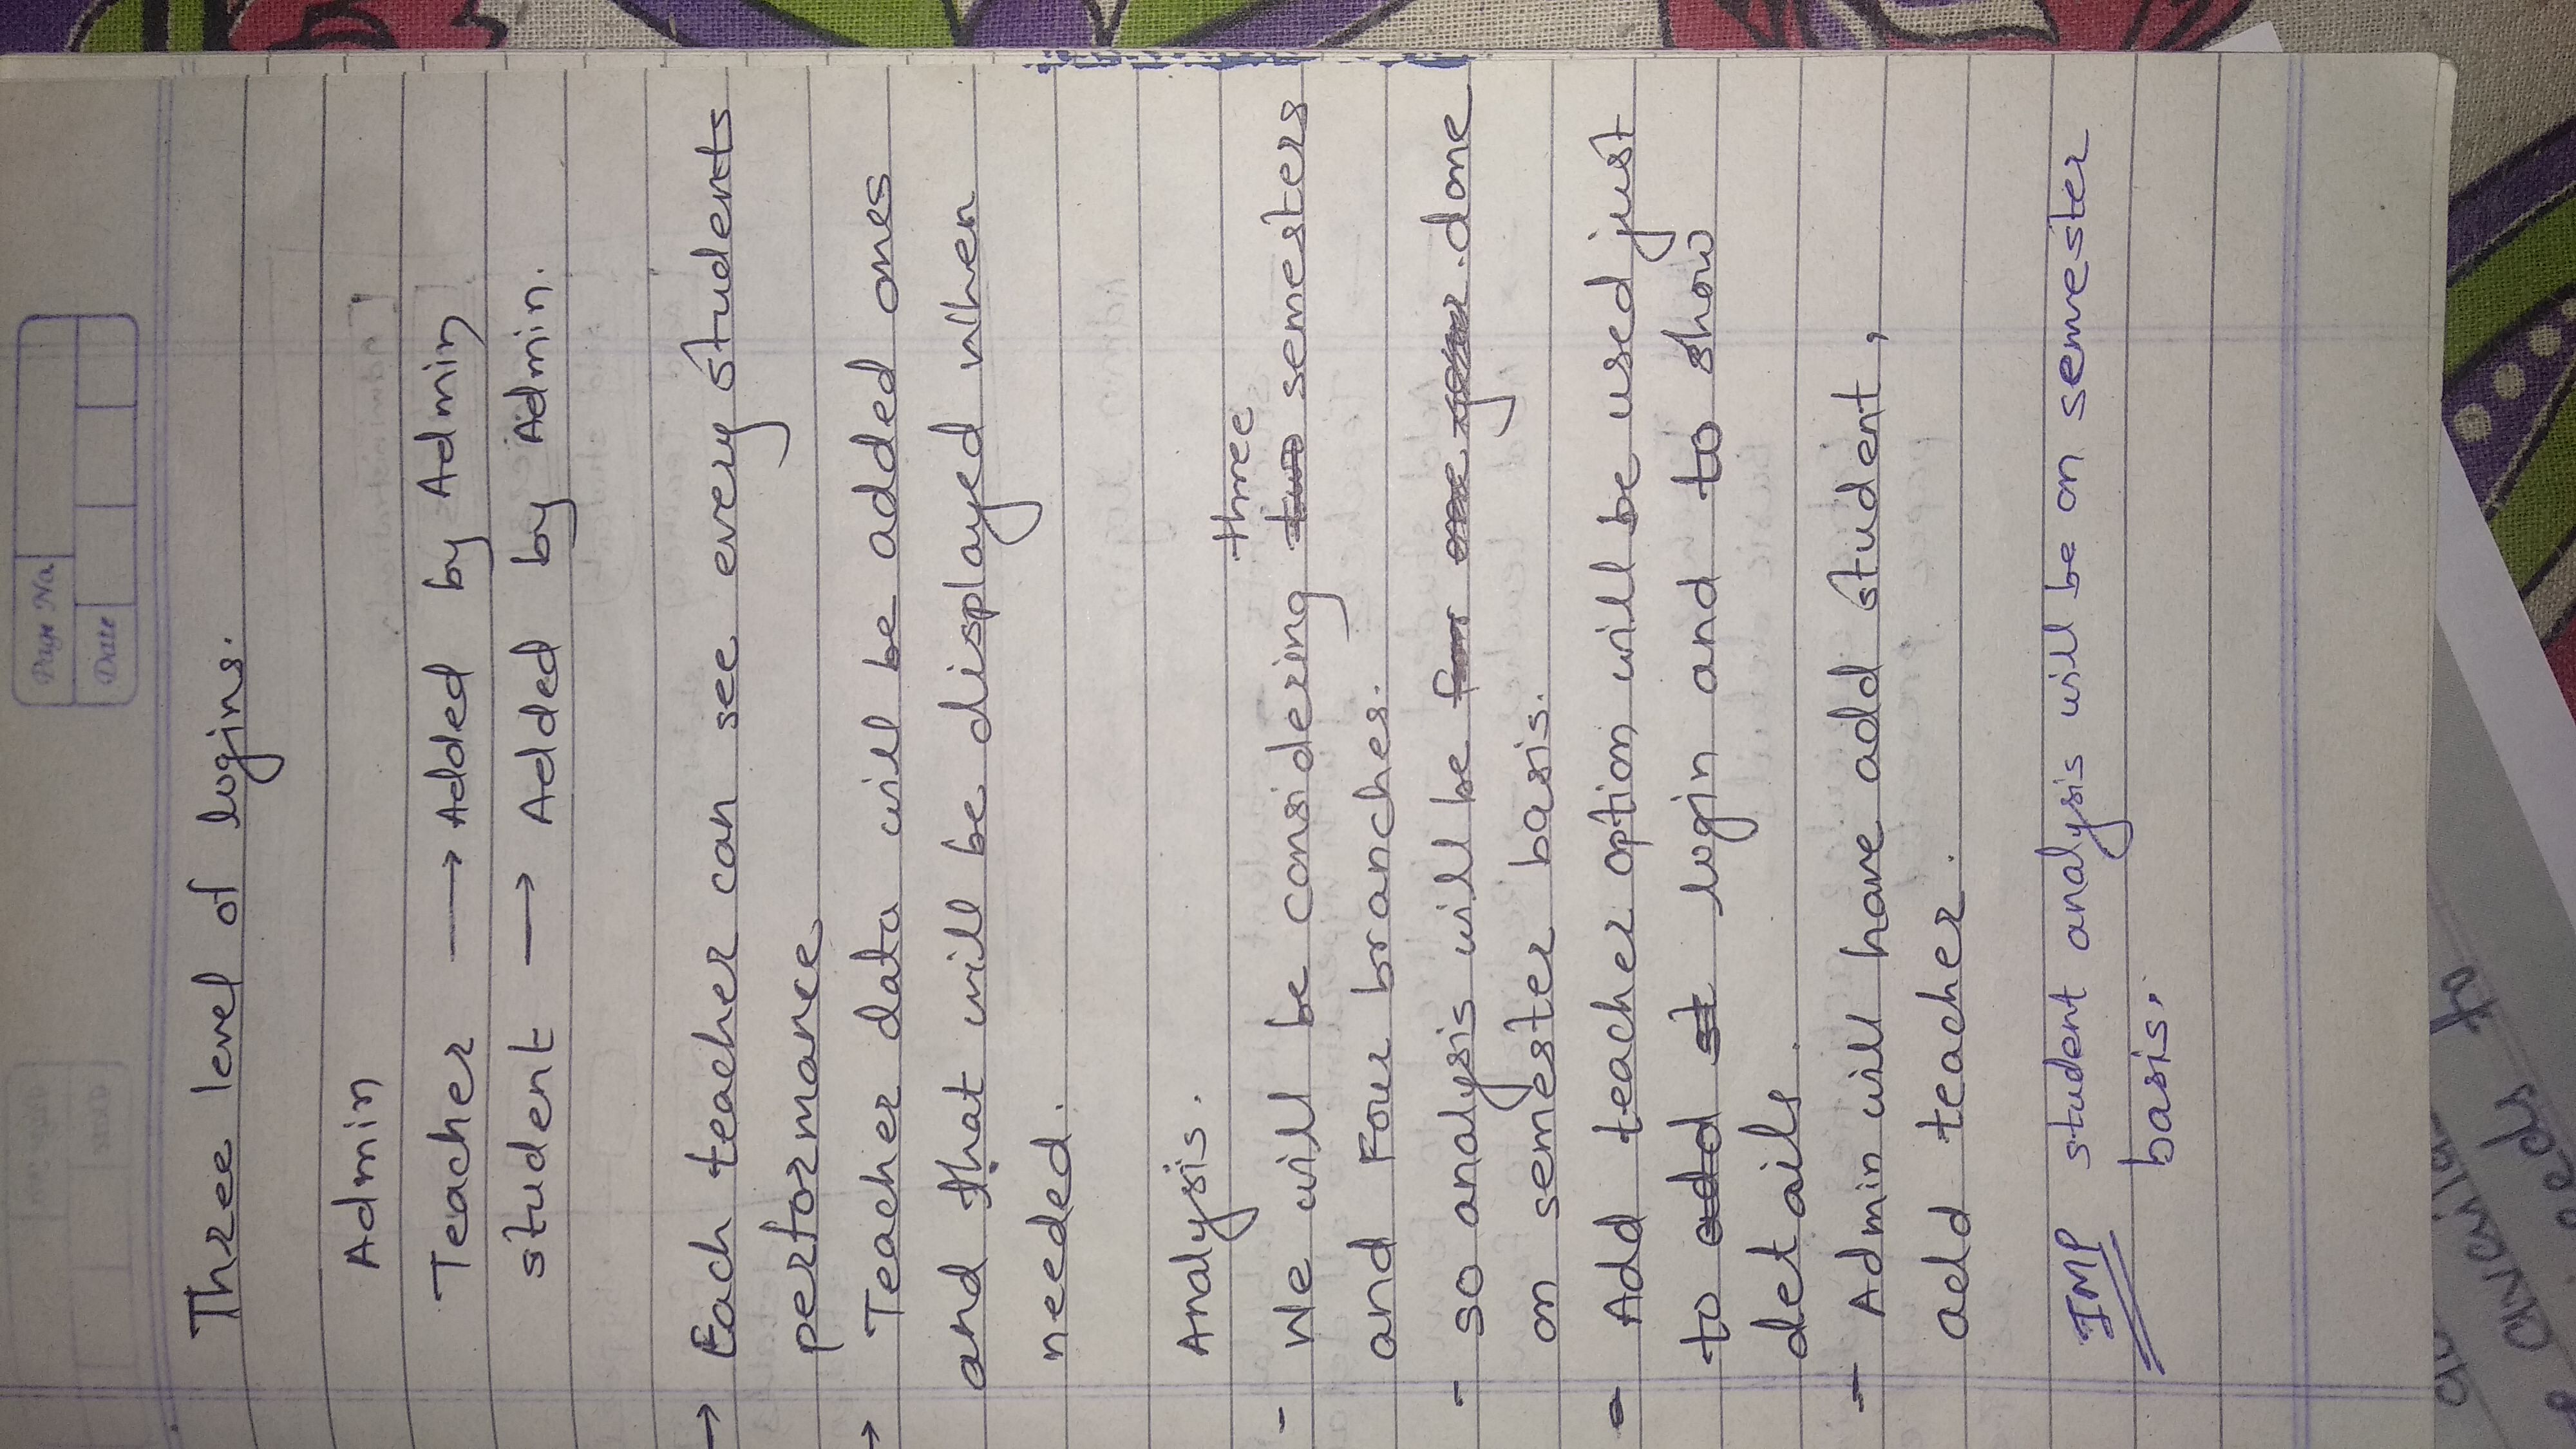 Page No.
Date
Three level of logins.
Admin
Teacher → Added by Admin
student → Added by Admin.
→ Each teacher can see every students
performance
→ Teacher data will be added ones
and that will be displayed when
needed.
Analysis.
three
- We will be considering two semesters
and Four branches.
- so analysis will be for one year. done
on semester basis.
- Add teacher option will be used just
to add st login and to show
details.
- Admin will have add student,
add teacher.
IMP student analysis will be on semester
basis.
availa
eeds to